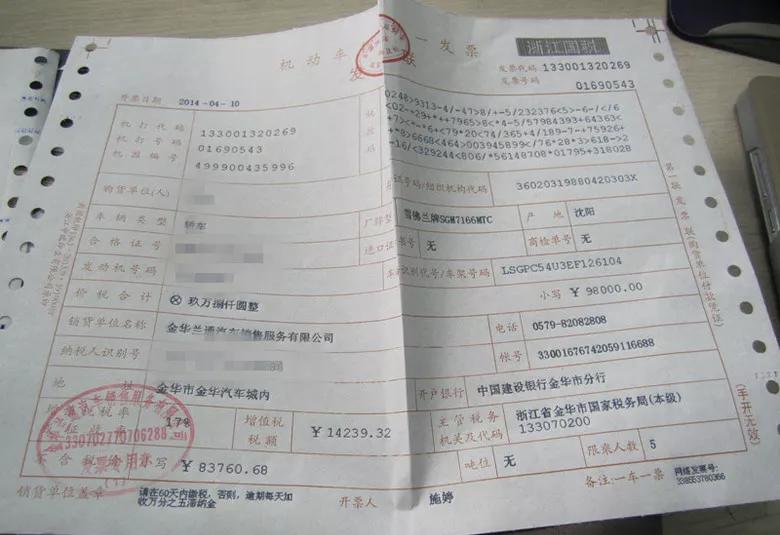 机动车
一发票
浙江国税
发
联
发票代码 133001320269
发票号码 01690543
开票日期 2014-04-10
机打代码 133001320269
机打号码 01690543
机器编号 499900435996
税控码
0248>9313-4/-47>8/+-5/232376<5>-6-/</6
<02-+29++++7965>8<*4-5/57984393+64363<
+7><+-*6+<79*20<74/365+4/189-7-+75926+
+*8>6668<464>003945899</76*28*3>618->2
-16/<329244<806/*56148708*01795+318028
购货单位(人)
证号码/组织机构代码 36020319880420303X
车辆类型 轿车
厂牌型 雪佛兰牌SGM7166MTC
产地 沈阳
合格证号
进口证 书号 无
商检单号 无
发动机号码
车 识别代号/车架号码 LSGPC54U3EF126104
价税合计 ⊗玖万捌仟圆整
小写 ¥98000.00
销货单位名称 金华兰通汽车销售服务有限公司
电话 0579-82082808
纳税人识别号
帐号 33001676742059116688
地址 金华市金华汽车城内
开户银行 中国建设银行金华市分行
增值税税率 17%
征收率
增值税税额 ¥14239.32
主管税务机关及代码 浙江省金华市国家税务局(本级)
133070200
不含税价 小写 ¥83760.68
吨位 无
限乘人数 5
销货单位盖章
请在60天内缴税，否则，逾期每天加
收万分之五滞纳金
开票人 施婷
备注:一车一票
网络发票号:
338553780366
第一联 发票联(购货单位付款凭证)
(手开无效)
330702770706288
发票专用章
(1)